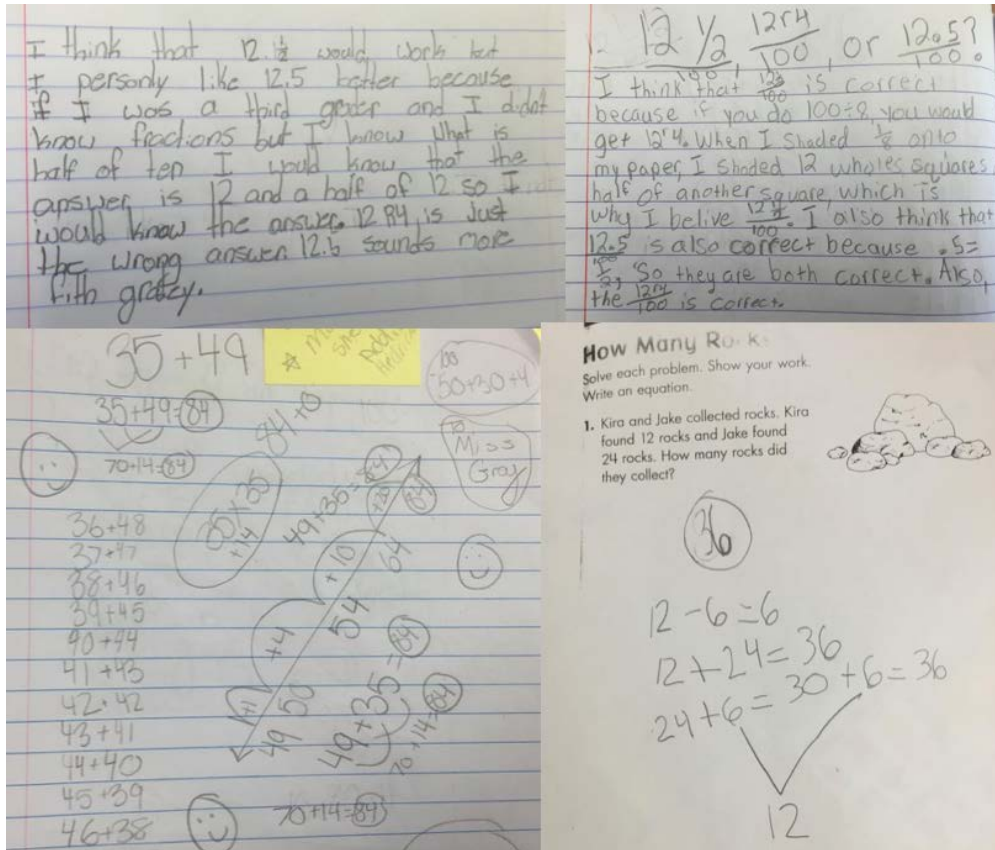 I think that 12.½ would work but
I personly like 12.5 better because
if I was a third grader and I didnt
know fractions but I know what is
half of ten I would know that the
answer is 12 and a half of 12 so I
would know the answer. 12 R4 is just
the wrong answer. 12.5 sounds more
fith gradey.
12 ½/100, 12r4/100, or 12.5/100?
I think that 12½/100 is correct
because if you do 100÷8, you would
get 12r4. When I shaded ⅛ onto
my paper, I shaded 12 wholes squares
half of another square, which is
why I belive 12½/100. I also think that
12.5/100 is also correct because .5=
½, So they are both correct. Also,
the 12r4/100 is correct.
35+49
35+49=84
70+14=84
36+48
37+47
38+46
39+45
40+44
41+43
42+42
43+41
44+40
45+39
46+38
84+0
35+35
+14
50+30+4
To
Miss
Gray
49+35=84
+1 +4 +10 +20
49 50 54 64 84
49+35=84
70+14=84
70+14=84
How Many Rocks
Solve each problem. Show your work.
Write an equation.
1. Kira and Jake collected rocks. Kira
found 12 rocks and Jake found
24 rocks. How many rocks did
they collect?
36
12-6=6
12+24=36
24+6=30+6=36
12